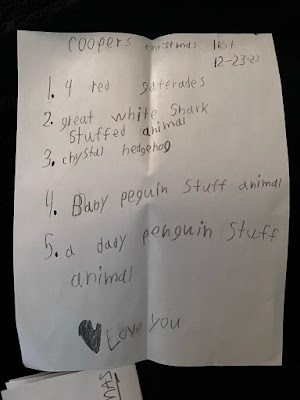 coopers christmas list
12-23-22
1. 4 red gaterades
2. great white shark
stuffed animal
3. chystal hedgehog
4. Baby peguin stuff animal
5. a dady penguin stuff
animal
Love you